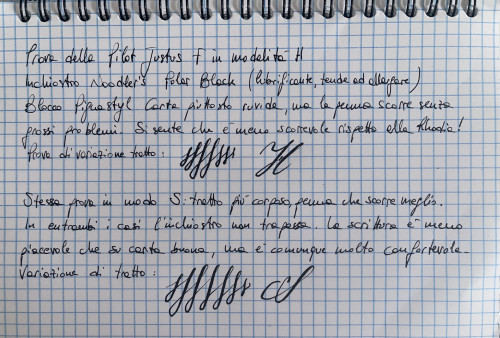 Prova della Pilot Justus F in modalità H
Inchiostro Noodler's Polar Black (lubrificante, tende ad allargare)
Blocco Pignastyl Carta piuttosto ruvida, ma la penna scorre senza
grossi problemi. Si sente che è meno scorrevole rispetto alla Rhodia!
Prova di variazione tratto: H
Stessa prova in modo S: tratto più corposo, penna che scorre meglio.
In entrambi i casi l'inchiostro non trapassa. La scrittura è meno
piacevole che su carta buona, ma è comunque molto confortevole.
Variazione di tratto: S